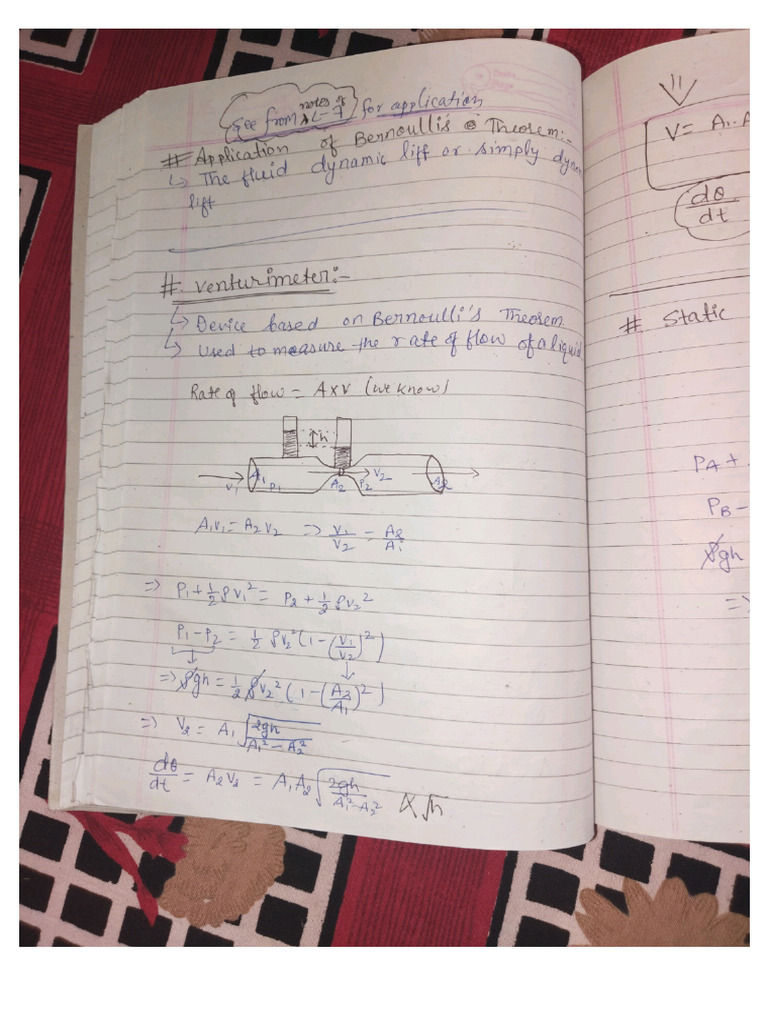 notes of
See from L-7 for application
# Application of Bernoullis Theorem:-
↳ The fluid dynamic liff or simply dyna
lift
# Venturimeter:-
↳ Device based on Bernoulli's Theorem.
↳ Used to measure the rate of flow of a liquid
Rate of flow = A×V (we know)
h
V₁ A₁ P₁ A₂ P₂ V₂ A₂
A₁V₁ = A₂V₂ ⇒ V₁/V₂ = A₂/A₁
⇒ P₁ + ½ρv₁² = P₂ + ½ρv₂²
P₁ - P₂ = ½ρv₂²(1 - (V₁/V₂)²)
⇒ ρgh = ½ρv₂²(1 - (A₂/A₁)²)
⇒ V₂ = A₁√(2gh/(A₁² - A₂²))
dθ/dt = A₂V₂ = A₁A₂√(2gh/(A₁² - A₂²)) ∝ √h
V = A₁.A
dθ/dt
# Static
PA +
PB -
ρgh
⇒